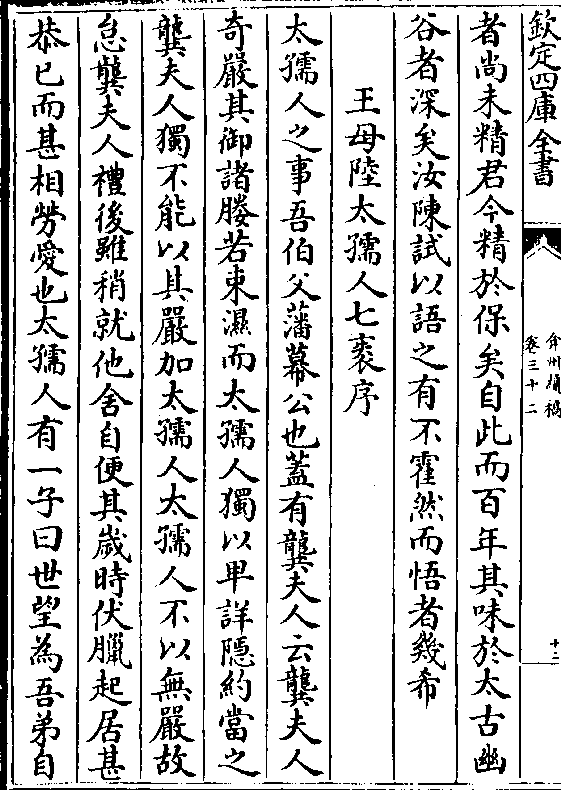 欽定四庫全書
弇州續稿
卷三十二
十二
者尚未精君今精於保矣自此而百年其味於太古幽
谷者深矣汝陳試以語之有不霍然而悟者幾希
王母陸太孺人七袠序
太孺人之事吾伯父藩幕公也蓋有龔夫人云龔夫人
奇嚴其御諸媵若束濕而太孺人獨以卑詳隱約當之
龔夫人獨不能以其嚴加太孺人太孺人不以無嚴故
怠龔夫人禮後雖稍就他舍自便其歲時伏臘起居甚
恭已而甚相勞愛也太孺人有一子曰世望為吾弟自